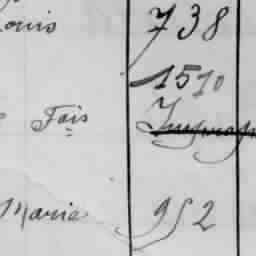 ouis 738
1510
Fois
Maria 952